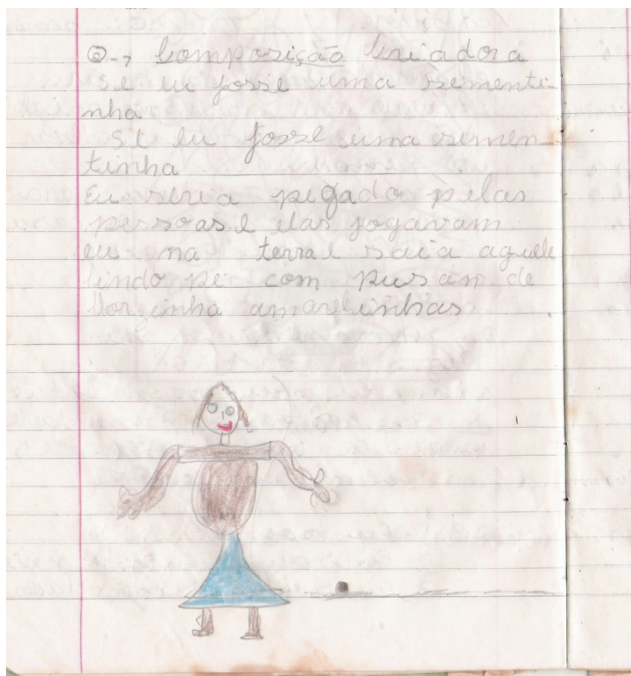 ② → Composição Criadora
Se eu fosse uma sementi-
nha
Se eu fosse uma semen-
tinha
Eu seria pegado pelas
pessoas e elas jogavam
eu na terra e saia aquele
lindo pé com pusam de
florzinha amareinhas